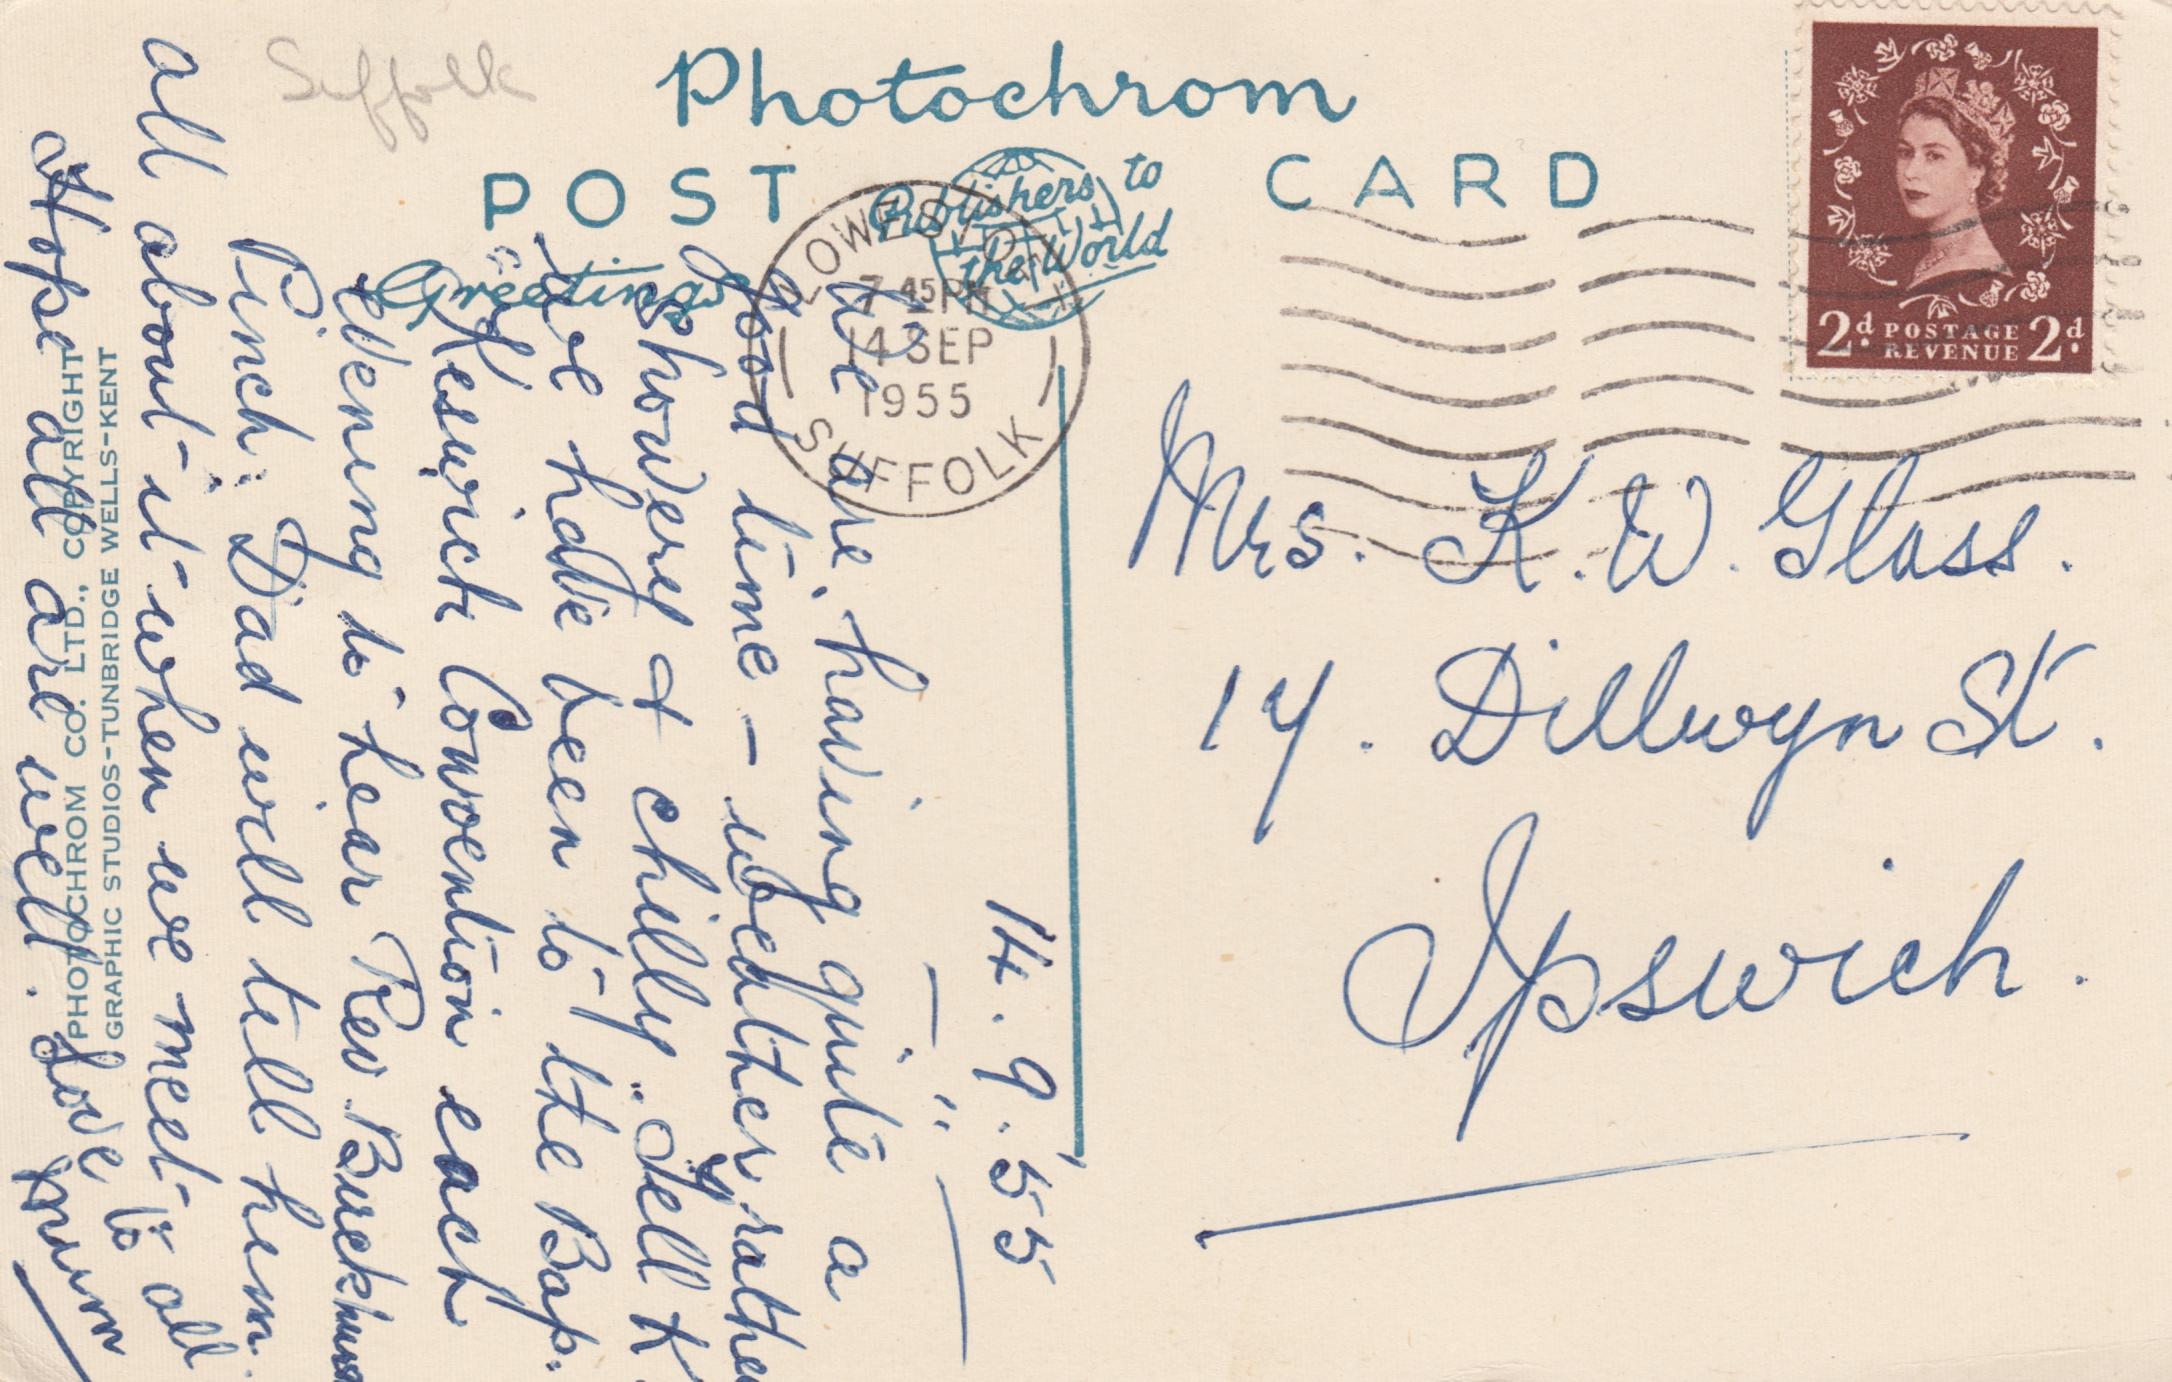 Suffolk
Photochrom
POST CARD
Publishers to
the World
Greetings
LOWESTOFT
7 45 PM
14 SEP
1955
SUFFOLK
2d POSTAGE 2d
REVENUE
Mrs. K. W. Glass.
17. Dillwyn St.
Ipswich.
14.9.55
We are having quite a
good time – weather rather
showery & chilly. Tell K
we have been to the Bap.
Keswich Convention each
evening to hear Rev.
Pinch: Dad will tell him
all about it when we meet to all
Hope all are well. Love,
Mum
PHOTOCHROM CO. LTD., COPYRIGHT
GRAPHIC STUDIOS-TUNBRIDGE WELLS-KENT